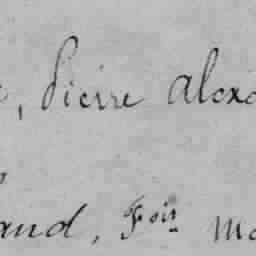 , Pierre Alexa
aud, Fois Ma